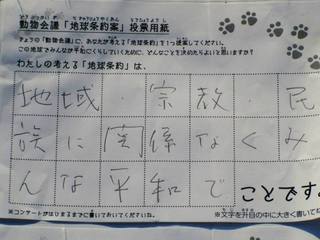 動物会議「地球条約案」投票用紙
きょうの「動物会議」に、あなたが考える「地球条約」を1つ提案してください。
この地球でみんなが平和にくらしていくために、どんなことを決めたらよいと思いますか?
わたしの考える「地球条約」は、
地域・宗教・民
族に関係なくみ
んな平和で
ことです。
※コンサートがはじまるまでに書いておいてくださいね。
※文字を升目の中に大きく書いて